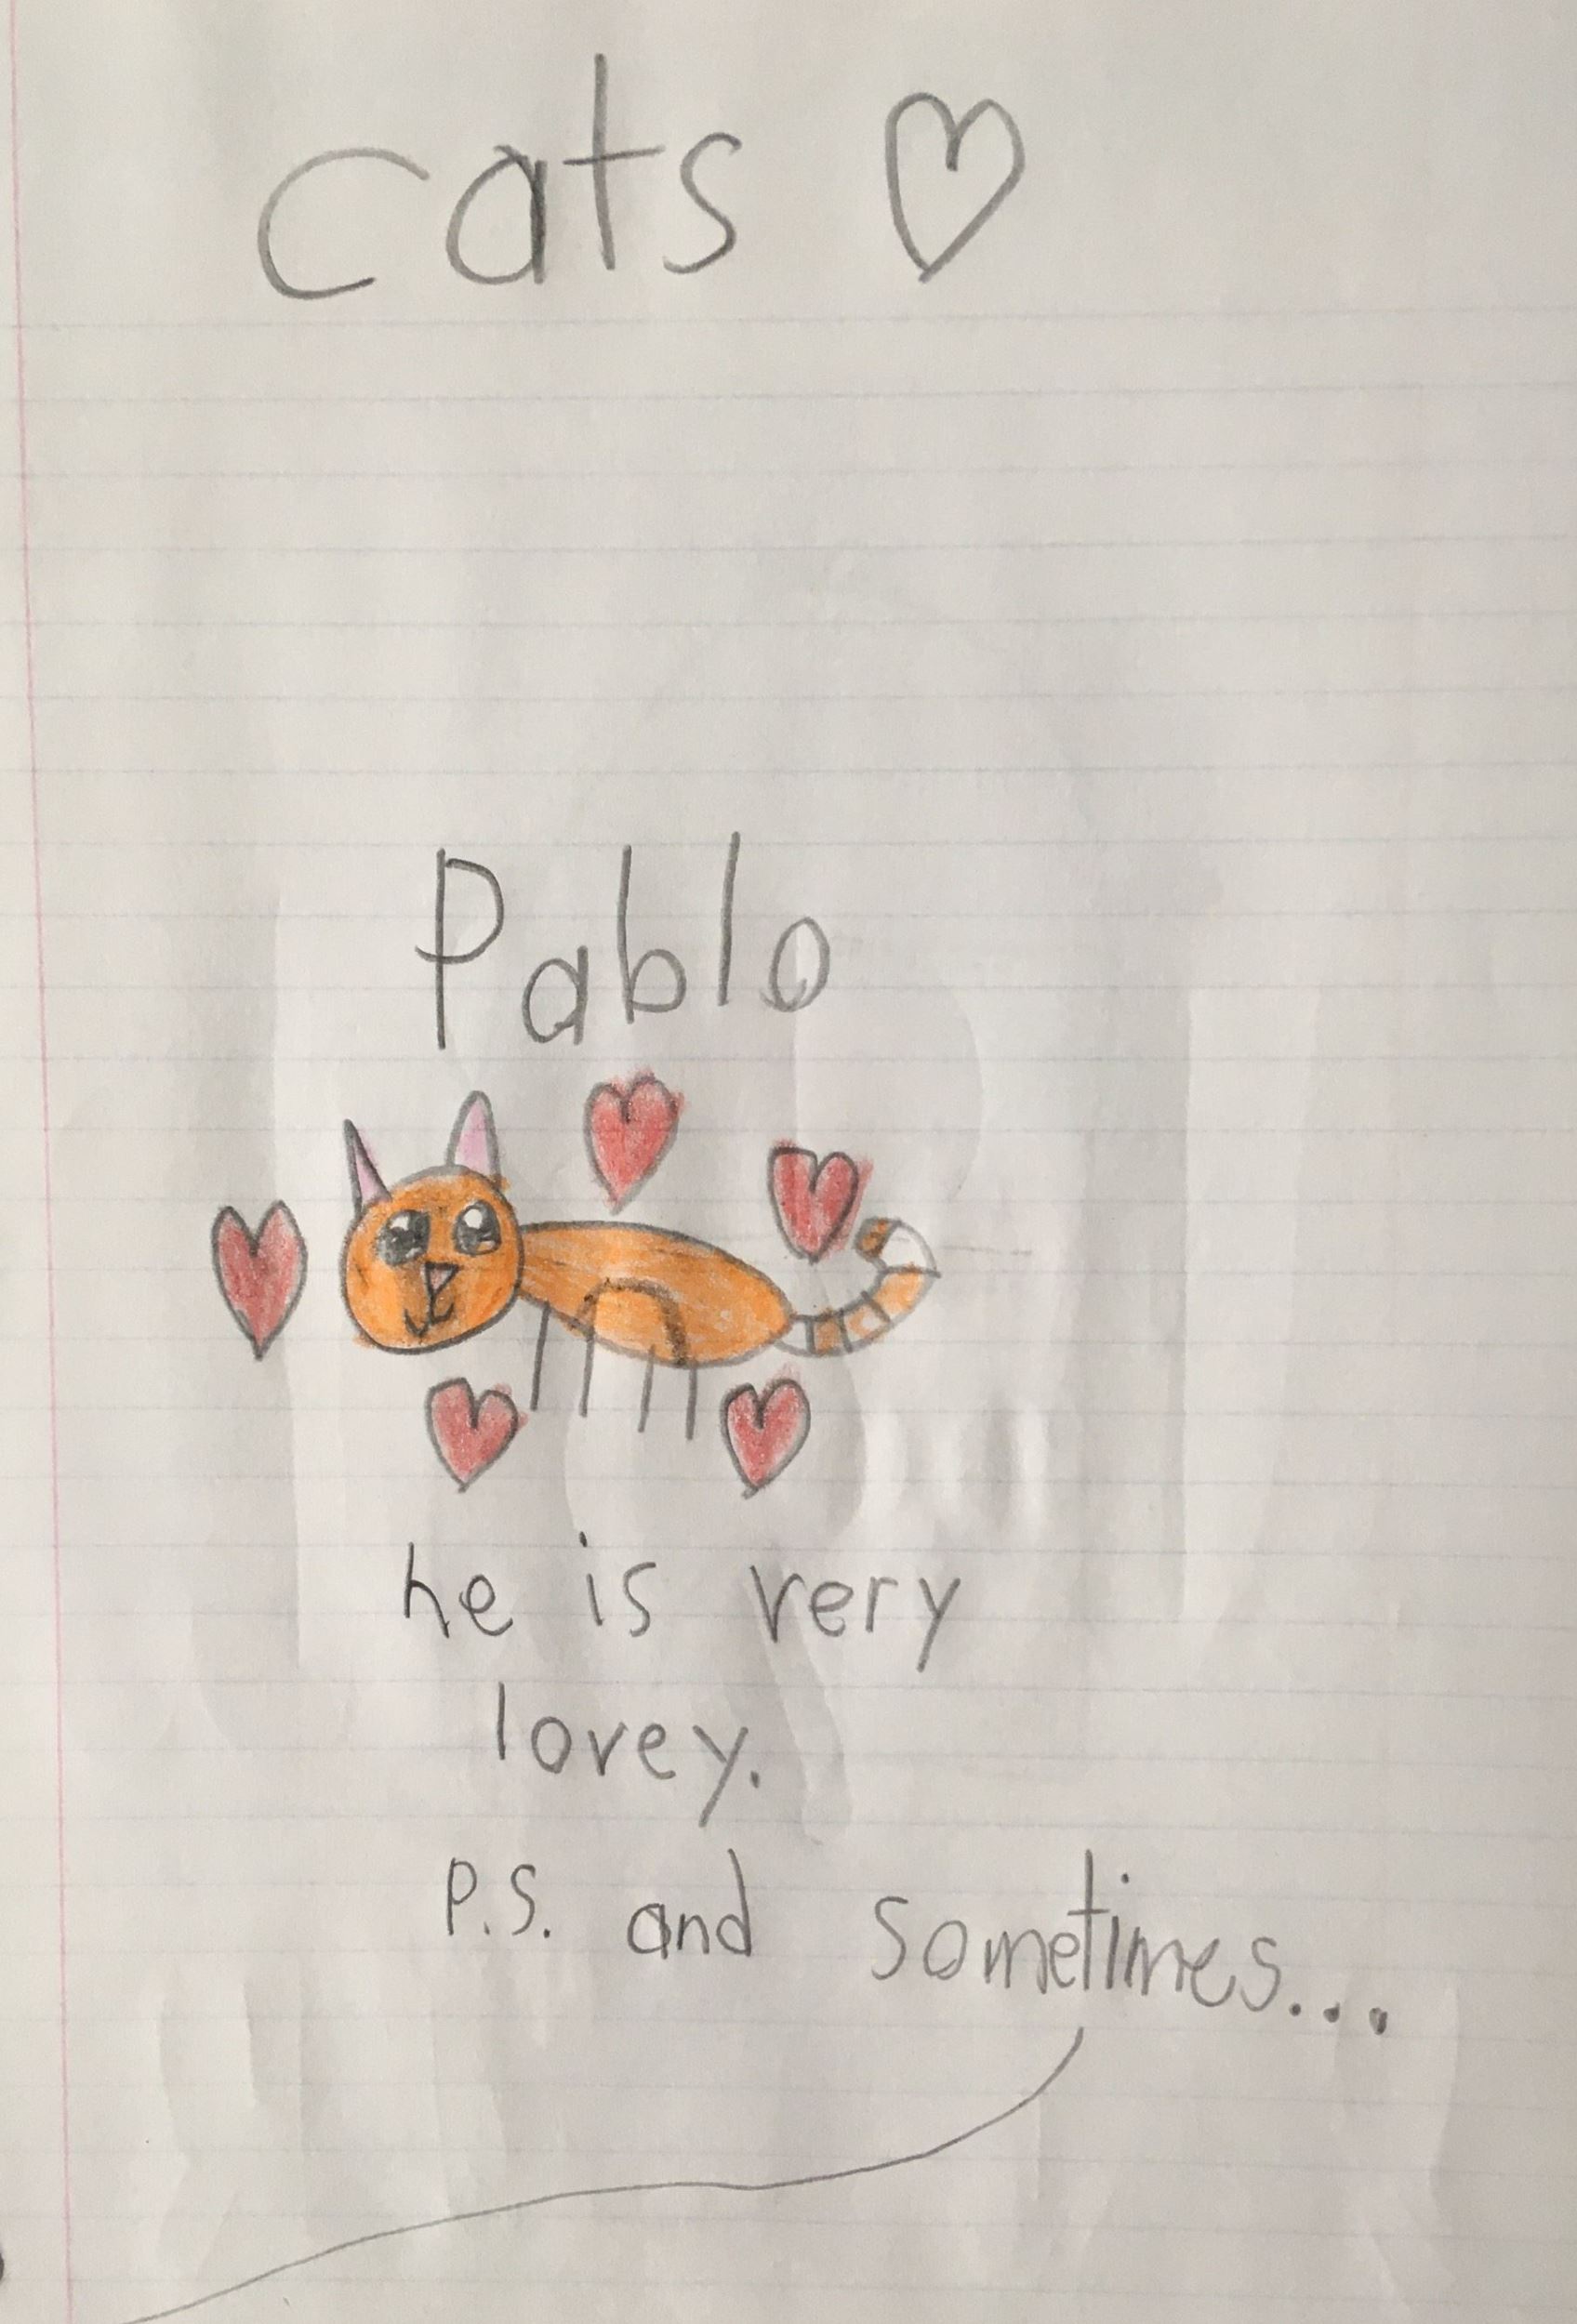 cats ♡
Pablo
he is very
lovey.
P.S. and sometimes...